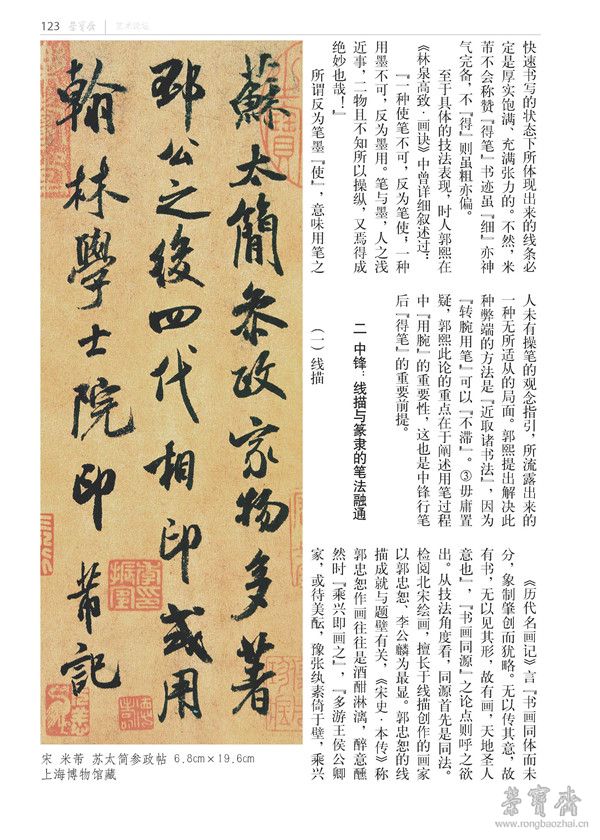 123 荣宝斋 艺术论坛
快速书写的状态下所体现出来的线条必
定是厚实饱满、充满张力的。不然，米
芾不会称赞『得笔』书迹虽『细』亦神
气完备，不『得』则虽粗亦偏。
至于具体的技法表现，时人郭熙在
《林泉高致·画诀》中曾详细叙述过：
『一种使笔不可，反为笔使；一种
用墨不可，反为墨用。笔与墨，人之浅
近事，二物且不知所以操纵，又焉得成
绝妙也哉！』
所谓反为笔墨『使』，意味用笔之
人未有操笔的观念指引，所流露出来的
一种无所适从的局面。郭熙提出解决此
种弊端的方法是『近取诸书法』，因为
『转腕用笔』可以『不滞』。③毋庸置
疑，郭熙此论的重点在于阐述用笔过程
中『用腕』的重要性，这也是中锋行笔
后『得笔』的重要前提。
二 中锋：线描与篆隶的笔法融通
（一）线描
《历代名画记》言『书画同体而未
分，象制肇创而犹略。无以传其意，故
有书，无以见其形，故有画，天地圣人
意也』，『书画同源』之论点则呼之欲
出。从技法角度看，同源首先是同法。
检阅北宋绘画，擅长于线描创作的画家
以郭忠恕、李公麟为最显。郭忠恕的线
描成就与题壁有关，《宋史·本传》称
郭忠恕作画往往是酒酣淋漓，醉意醺
然时『乘兴即画之』，『多游王侯公卿
家，或待美酝，豫张纨素倚于壁，乘兴
蘇太簡參政家物多著
邳公之後四代相印或用
翰林學士院印 芾記
宋 米芾 苏太简参政帖 6.8cm×19.6cm
上海博物馆藏
荣宝斋
www.rongbaozhai.cn